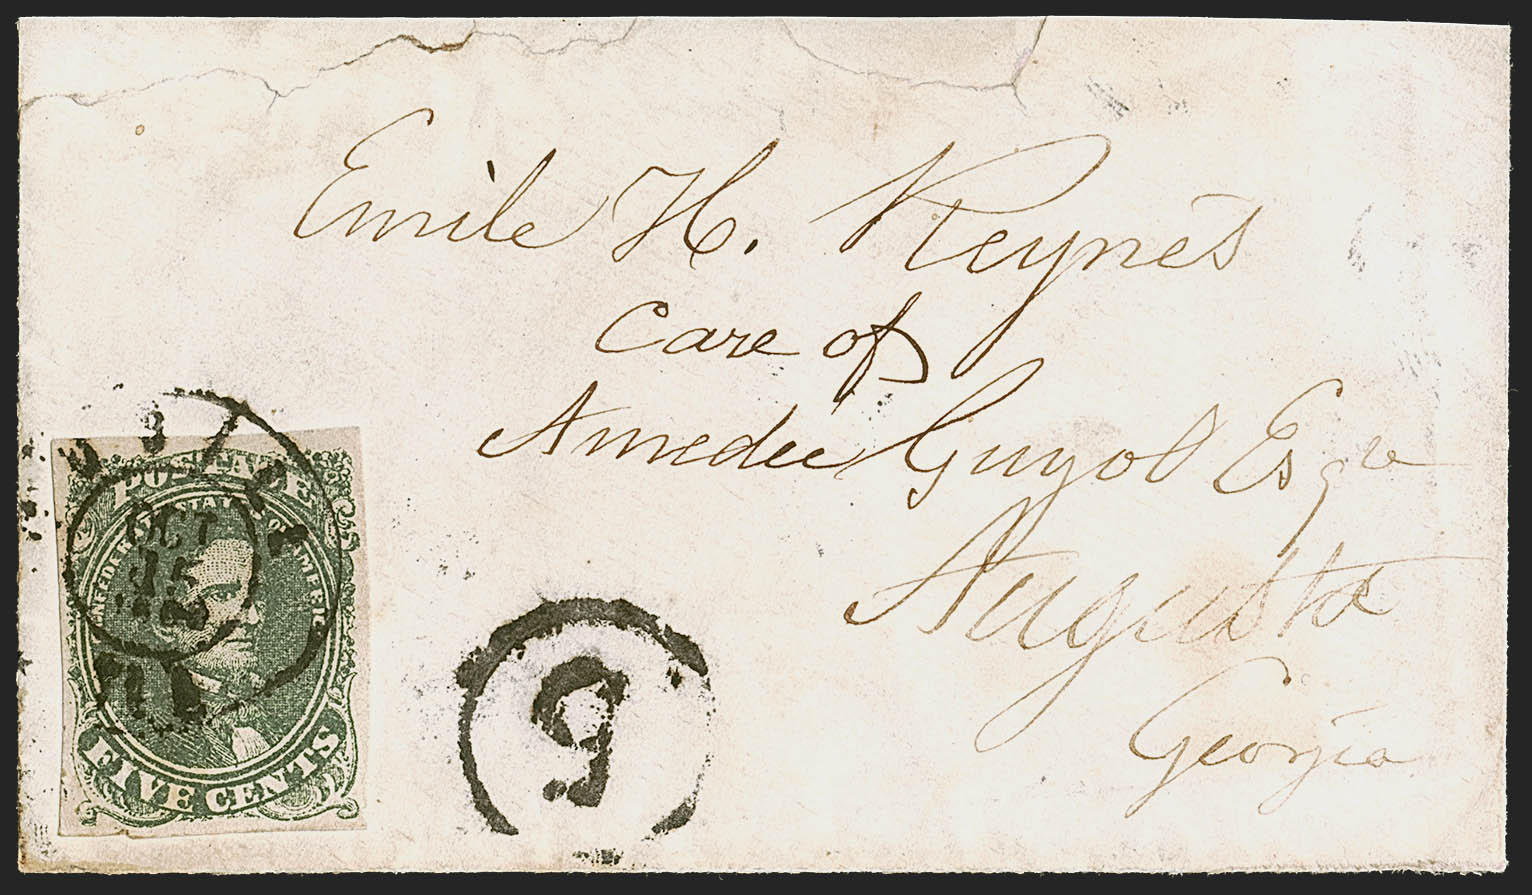 Emile H. Reynes
Care of
Amedee Guyol Esqr
Augusta
Georgia
POSTAGE
CONFEDERATE STATES OF AMERICA
FIVE CENTS
OCT
15
5